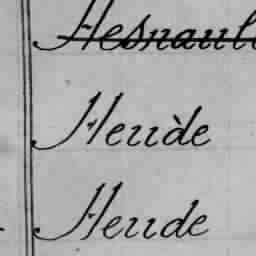 Hesnaul
Heudè
Heude